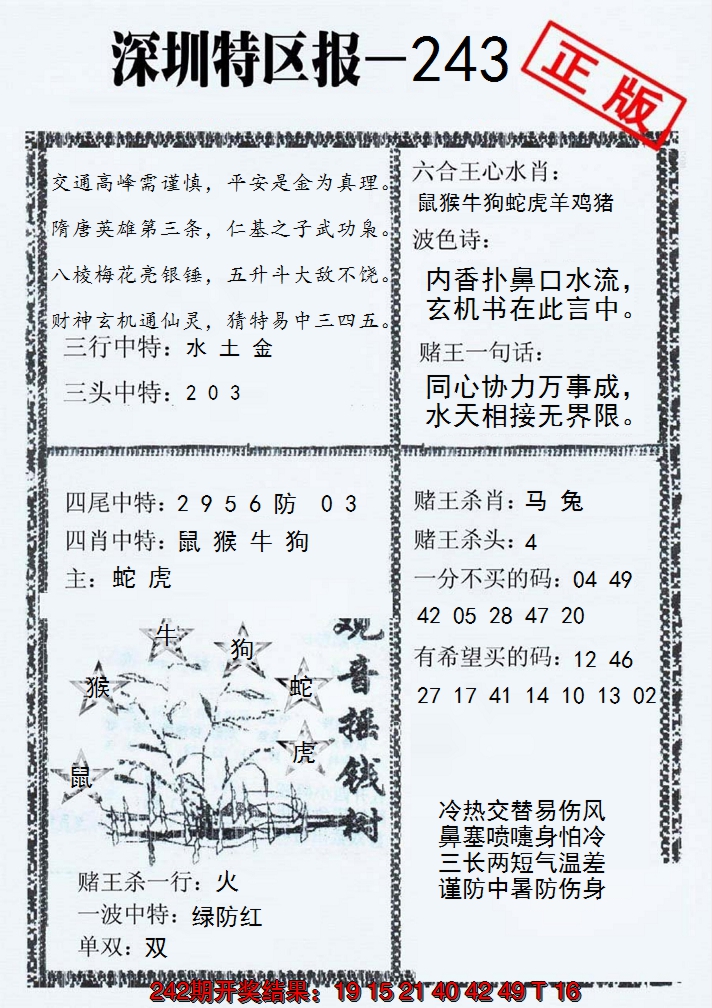 深圳特区报—243
正版
交通高峰需谨慎，平安是金为真理。
隋唐英雄第三条，仁基之子武功枭。
八棱梅花亮银锤，五升斗大敌不饶。
财神玄机通仙灵，猜特易中三四五。
三行中特：水 土 金
三头中特：2 0 3
六合王心水肖：
鼠猴牛狗蛇虎羊鸡猪
波色诗：
内香扑鼻口水流，
玄机书在此言中。
赌王一句话：
同心协力万事成，
水天相接无界限。
四尾中特：2 9 5 6 防 0 3
四肖中特：鼠 猴 牛 狗
主：蛇 虎
牛
狗
猴
蛇
虎
鼠
观音摇钱树
赌王杀一行：火
一波中特：绿防红
单双：双
赌王杀肖：马 兔
赌王杀头：4
一分不买的码：04 49
42 05 28 47 20
有希望买的码：12 46
27 17 41 14 10 13 02
冷热交替易伤风
鼻塞喷嚏身怕冷
三长两短气温差
谨防中暑防伤身
242期开奖结果：19 15 21 40 42 49 T 16